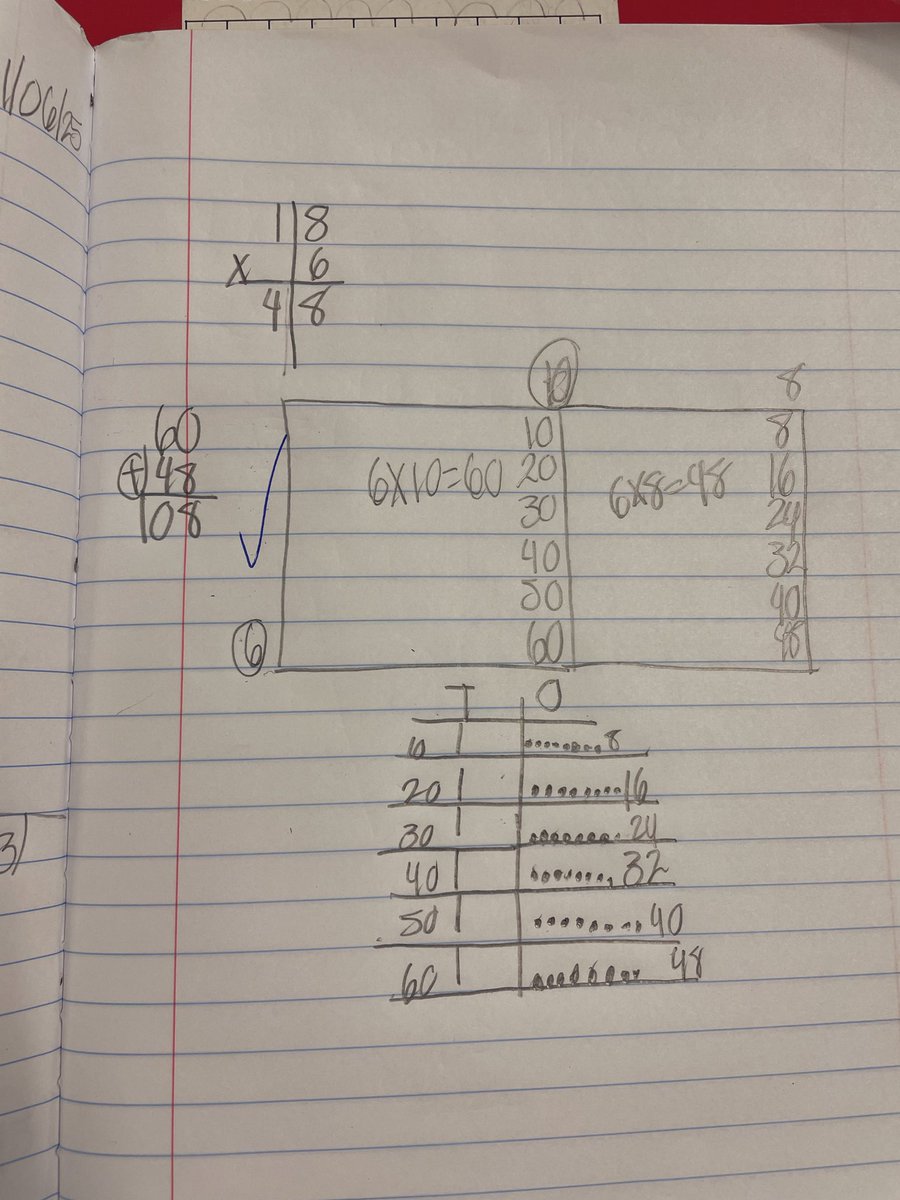 1/06/25
18
x 6
48
10 8
60
+48
108
10 8
6x10=60 20 6x8=48 16
30 24
40 32
50 40
6 60 48
T O
10 8
20 16
30 24
40 32
50 40
60 48
3)